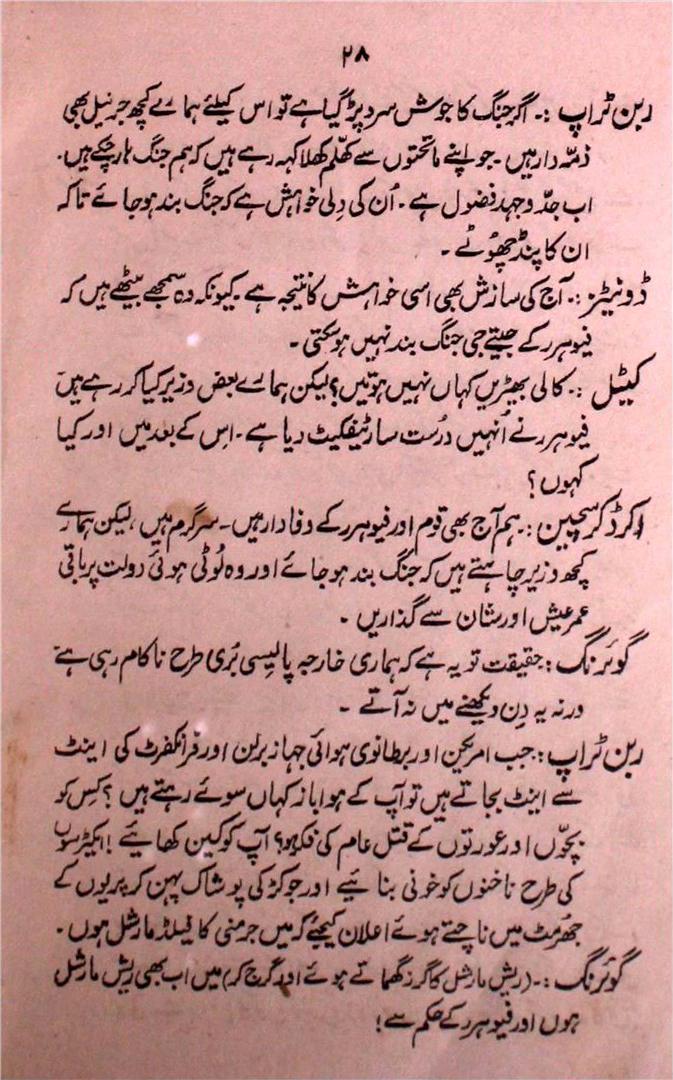 ۲۸
ربن ٹراپ :۔ اگر جنگ کا جوش سرد پڑ گیا ہے تو اس کیلئے ہمارے کچھ جرنیل بھی
ذمّہ دار ہیں ۔ جو اپنے ماتحتوں سے کھلّم کھلا کہہ رہے ہیں کہ ہم جنگ ہار چکے ہیں ۔
اب جدّ و جہد فضول ہے ۔ اُن کی دِلی خواہش ہے کہ جنگ بند ہو جائے تاکہ
ان کا پنڈ چھُوٹے ۔
ڈونیٹز :۔ آج کی سازش بھی اسی خواہش کا نتیجہ ہے ۔ کیونکہ وہ سمجھے بیٹھے ہیں کہ
فیوہرر کے جیتے جی جنگ بند نہیں ہو سکتی ۔
کیٹل :۔ کالی بھیڑیں کہاں نہیں ہوتیں؟ لیکن ہمارے بعض وزیر کیا کر رہے ہیں
فیوہرر نے اُنہیں درُست سارٹیفکیٹ دیا ہے ۔ اِس کے بعد میں اور کیا
کہوں ؟
اکرڈ کرسچین :۔ ہم آج بھی قوم اور فیوہرر کے وفادار ہیں ۔ سرگرم ہیں ، لیکن ہمارے
کچھ وزیر چاہتے ہیں کہ جنگ بند ہو جائے اور وہ لُوٹی ہوئی دولت پر باقی
عمر عیش اور شان سے گذاریں ۔
گوئرنگ :۔ حقیقت تو یہ ہے کہ ہماری خارجہ پالیسی بُری طرح ناکام رہی ہے
ورنہ یہ دِن دیکھنے میں نہ آتے ۔
ربن ٹراپ :۔ جب امریکن اور برطانوی ہوائی جہاز برلن اور فرانکفرٹ کی اینٹ
سے اینٹ بجاتے ہیں تو آپ کے ہواباز کہاں سوئے رہتے ہیں ؟ کِس کو
بچّوں اور عورتوں کے قتل عام کی فکر ہو؟ آپ کوکین کھائیے ! ایکٹرسوں
کی طرح ناخنوں کو خونی بنائیے اور جوکر کی پوشاک پہن کر پریوں کے
جھُرمٹ میں ناچتے ہوئے اعلان کیجئے کہ میں جرمنی کا فیلڈ مارشل ہوں ۔
گوئرنگ :۔ (ریش مارشل کا گرز گھماتے ہوئے اور گرج کر) میں اب بھی ریش مارشل
ہوں اور فیوہرر کے حکم سے !